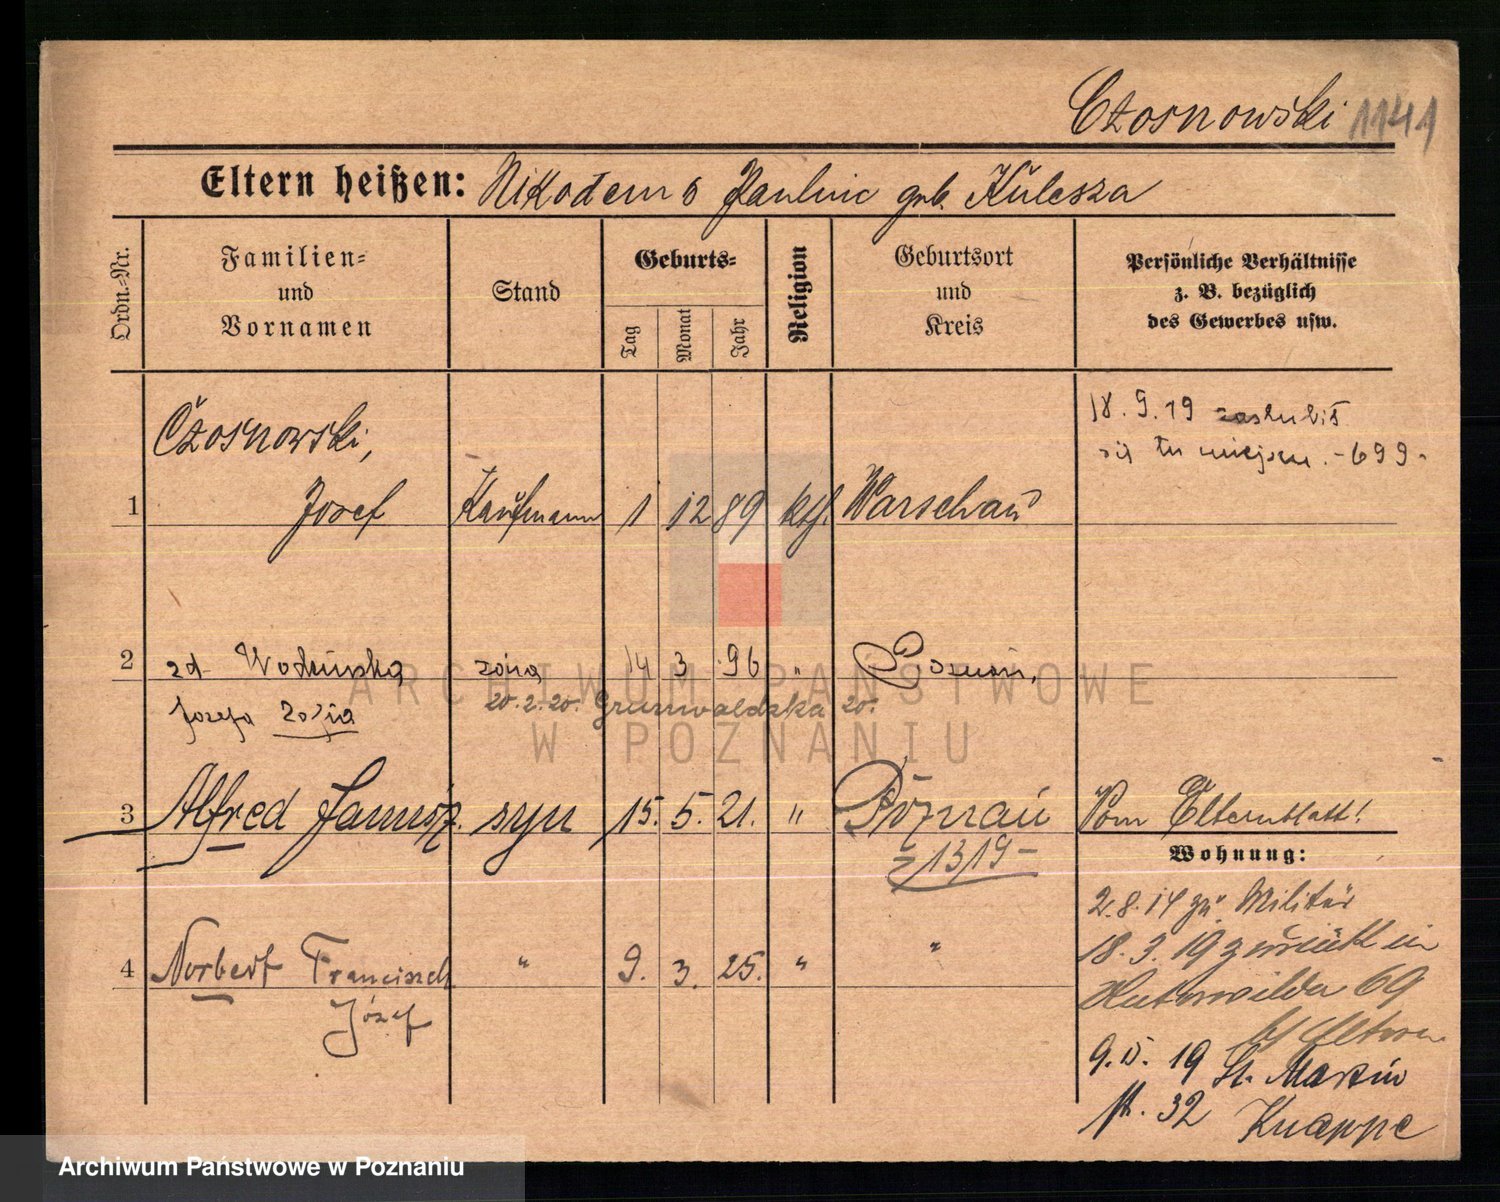 Czosnowski 1141
Eltern heißen: Nikodem & Pauline geb. Kulesza
Ordn.-Nr.
Familien-
und
Vornamen
Stand
Geburts-
Tag
Monat
Jahr
Religion
Geburtsort
und
Kreis
Persönliche Verhältnisse
z. B. bezüglich
des Gewerbes usw.
18. 9. 19 zaślubił
się tu miejsca. -699-
Czosnowski,
1 Josef Kaufmann 1 12 89 ktf. Warschau
2 zd żona 14 3 96 " Poznań,
Józefa Zofja
20.2.20. Grunwaldzka 20.
3 Alfred syn 15. 5. 21. " Poznań Vom Elternblatt!
1319-
Wohnung:
2.8.14 zu Militär
18.3.19 zurück in
69
4 Norbert Franciszek " 9. 3. 25. " "
Józef
b/ Eltern
9. 19 St. Martin
32 Knappe
ARCHIWUM PAŃSTWOWE
W POZNANIU
Archiwum Państwowe w Poznaniu